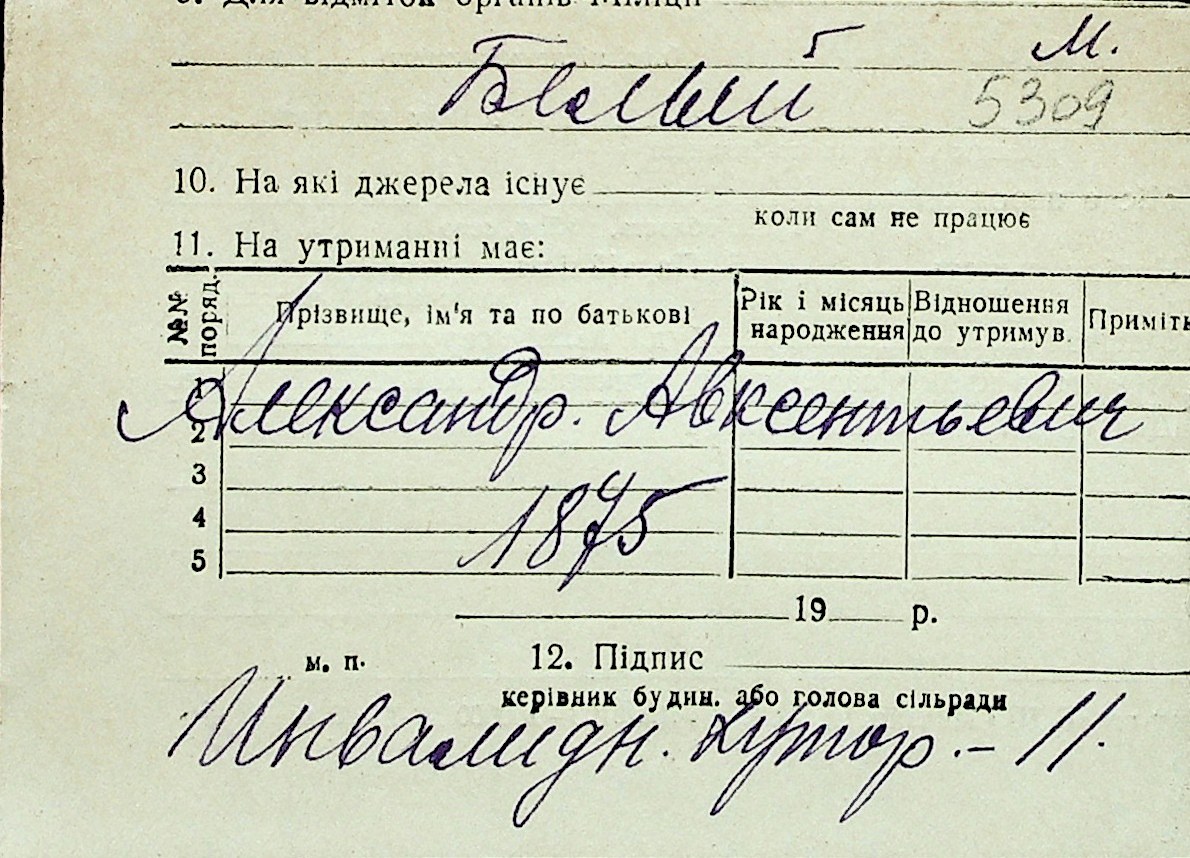 9. Для відміток органів Міліції
М.
Белый 5309
10. На які джерела існує
коли сам не працює
11. На утриманні має:
№№ поряд. Прізвище, ім'я та по батькові Рік і місяць народження Відношення до утримув. Приміт
1
Александр. Авксентьевич
2
3
4
1875
5
19 р.
м. п. 12. Підпис
керівник будин. або голова сільради
Инвалидн. хутор. - 11.